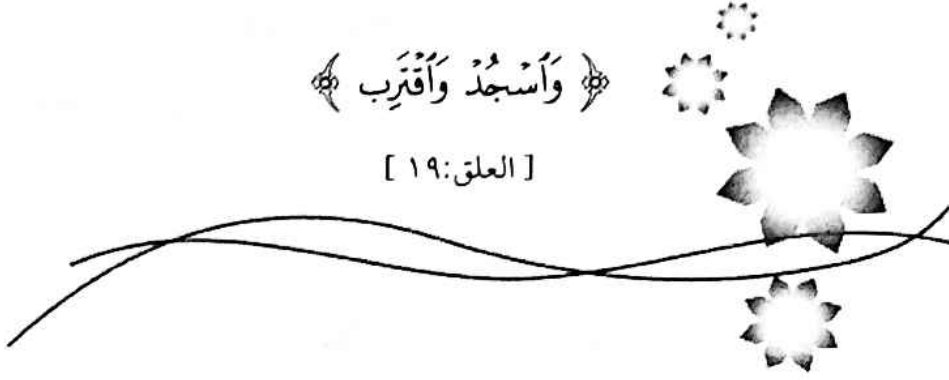 ﴿ وَٱسْجُدْ وَٱقْتَرِب ﴾
[ العلق:١٩ ]